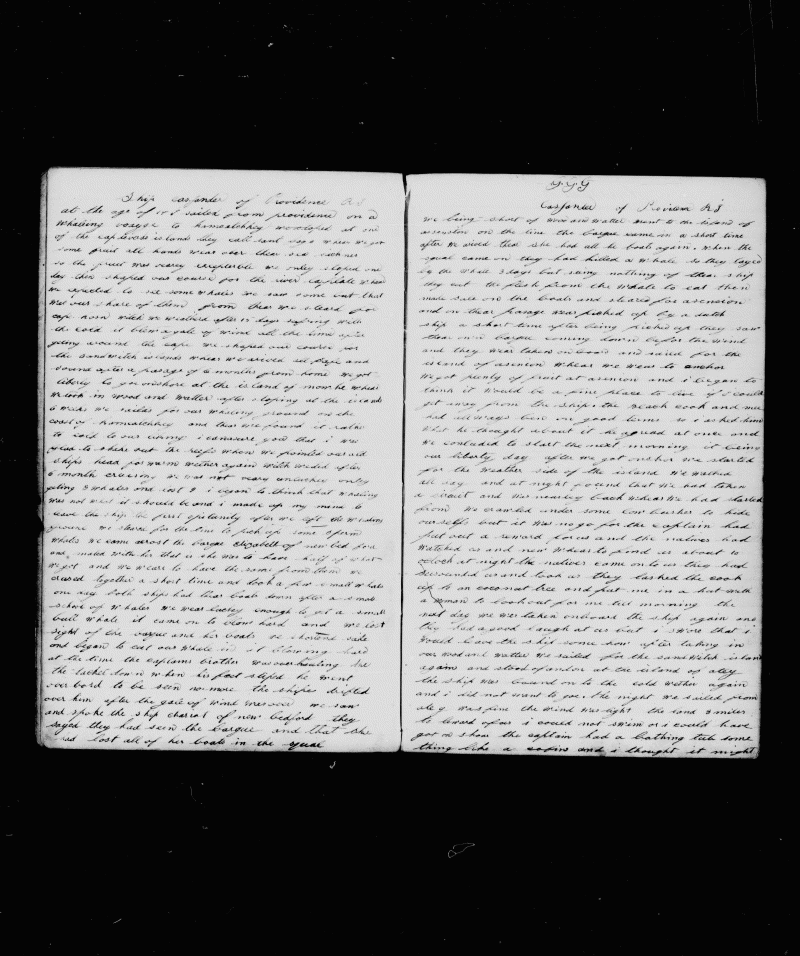 Ship casander of Providence R I
at the age of sailed from providence on a
whaleing voage to kamschatkey we stoped at one
of the capdevards islands they call sant jago whear we got
some fruit all hands wear over thear sea sickness
so the fruit was veary exceptable we only stoped one
day then shaped our course for the river laplate whear
we expected to see some whales we saw some but that
was our share of them from thear we steard for
cape horn witch we wethered after days strugling with
the cold it blew a gale of wind all the time after
geting around the cape we shaped our course for
the sandwitch islands whear we arived all safe and
sound after a pasage of 6 months from home we got
liberty to go on shore at the island of mowhe whear
we took in wood and watter after stoping at the islands
6 weeks we sailed for our whaling ground on the
coast of kamschatkey and thear we found it rather
to cold to our liking i can sure you that i was
glad to shear out the reefs when we pointed our old
ships head for warm wether again witch we did after
6 month cruising we was not veary unlucky only
geting 3 whales and lost 2 i began to think that whaleing
was not what it should be and i made up my mind to
leave the ship the first opertunity after we left the whaleing
ground we steard for the line to pick up some sperm
whales we came acrost the barque Elizabeth of new bed ford
and mated with her that is she was to have half of what
we got and we wears to have the same from them we
crused together a short time and took a few small whales
one day both ships had thear boats down after a small
school of whales we wear luckey enough to get a small
bull whale it came on to blow hard and we lost
sight of the barque and her boats we shortend sail
and began to cut our whale in it blowing hard
at the time the captains brother was over hauling the
the tackel down when his foot sliped he went
overbord to be seen no more the ship drifted
over him after the gale of wind was over we saw
and spoke the ship charas of new bedford they
sayed they had seen the barque and that she
had lost all of her boats in the squal
Casander of Providence R I
we being short of wood and watter went to the island of
assension on the line the barque came in a short time
after we arived thear she had all he boats again. when the
squal came on they had killed a whale so they layed
by the whale 3 days but seing nothing of thear ship
they cut the flesh from the whale to eat then
made sale on the boats and steared for asension
and on thear pasage was picked up by a dutch
ship a short time after being picked up they saw
thear own barque coming down before the wind
and they wear taken on board and sailed for the
island of asension whear we wear to anchor
We got plenty of fruit at asension and i began to
think it would be a fine place to live if i could
get away from the ship the black cook and me
had allways bin on good terms so i asked him
what he thought about it he agread at once and
we concluded to start the next morning it being
our liberty day after we got on shor we started
for the weather side of the island we walked
all day and at night found that we had taken
a circuit and was nearley back whear we had started
from we crawled under some low bushes to hide
our selfs but it was no go for the captain had
put out a reward for us and the natives had
watched us and new whear to find us about 10
oclock at night the natives came on to us they had
surounded us and took us they lashed the cook
up to an coconut tree and put me in a hut with
a woman to look out for me till morning the
next day we wer taken on board the ship again and
they had a good laugh at us but i swore that i
would leave the ship some how after taking in
our wood and watter we sailed for the sandwitch island
again and stood of and on at the island of
the ship was bound on to the cold wether again
and i did not want to go. the night we sailed from
was fine the wind was light the land 3 miles
to leward of us i could not swim or i could have
got on shore the captain had a bathing tub some
thing like a cofin and i thought it might